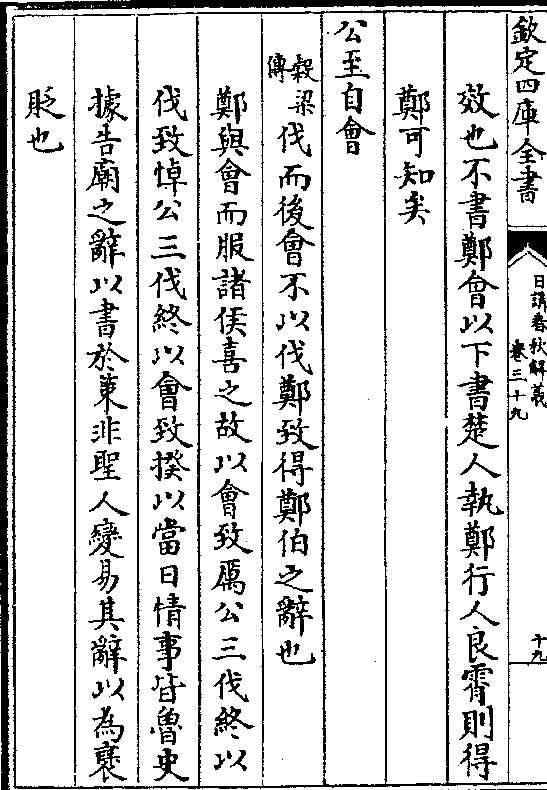 欽定四庫全書
日講春秋解義
卷三十九
十九
效也不書鄭會以下書楚人執鄭行人良霄則得
鄭可知矣
公至自會
穀梁
傳
伐而後會不以伐鄭致得鄭伯之辭也
鄭與會而服諸侯喜之故以會致厲公三伐終以
伐致悼公三伐終以會致揆以當日情事皆魯史
據告廟之辭以書於策非聖人變易其辭以為褒
貶也